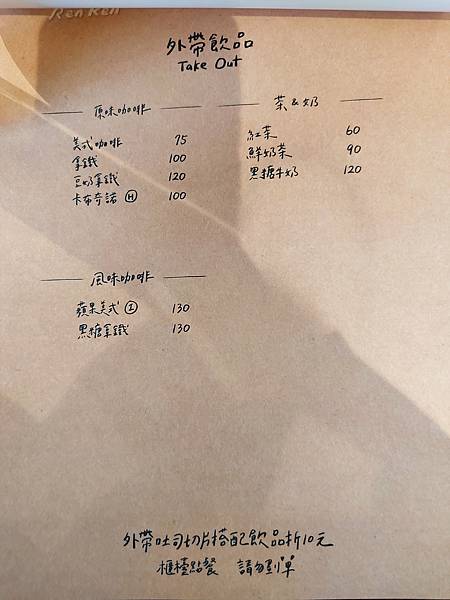 Ren Ren
外帶飲品
Take Out
原味咖啡
美式咖啡 75
拿鐵 100
豆奶拿鐵 120
卡布奇諾 Ⓗ 100
茶 & 奶
紅茶 60
鮮奶茶 90
黑糖牛奶 120
風味咖啡
蘋果美式 Ⓘ 130
黑糖拿鐵 130
外帶吐司切片搭配飲品折10元
櫃檯點餐 請勿劃單